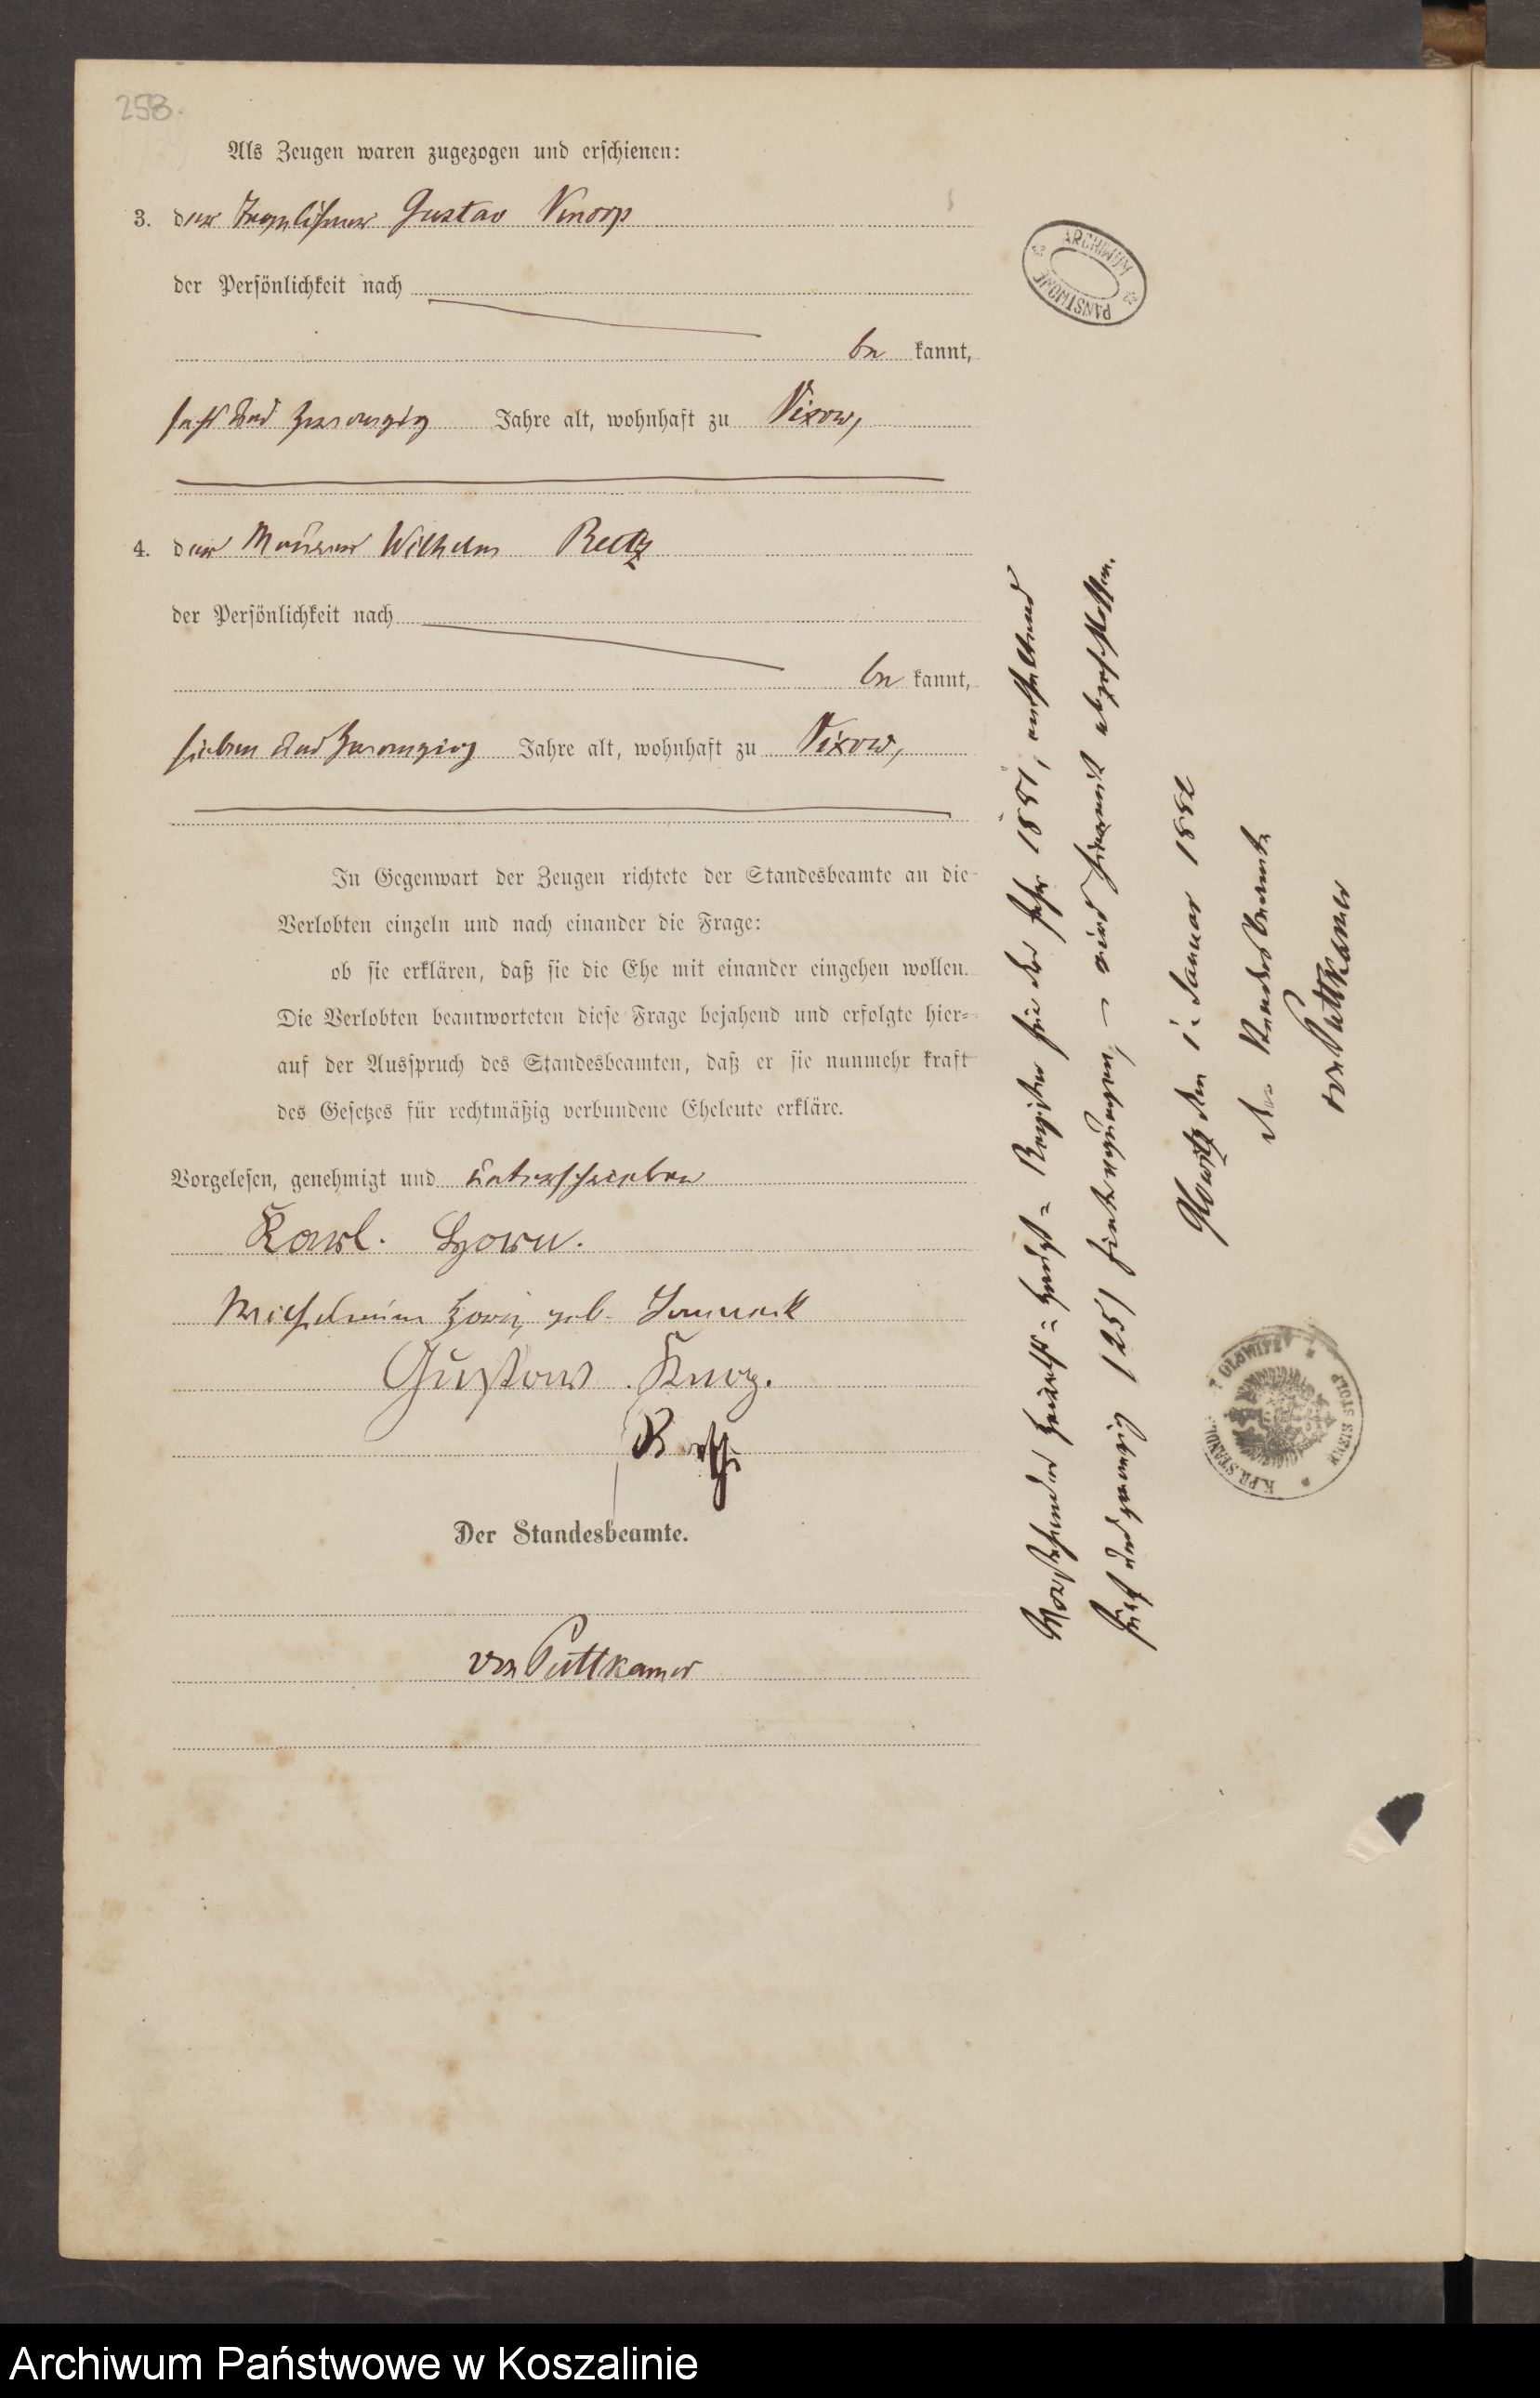 258.
Als Zeugen waren zugezogen und erschienen:
3. der Tagelöhner Gustav Knorp
der Persönlichkeit nach
be kannt,
sechs und zwanzig Jahre alt, wohnhaft zu Vixow,
4. der Maurer Wilhelm
der Persönlichkeit nach
be kannt,
sieben und zwanzig Jahre alt, wohnhaft zu Vixow,
In Gegenwart der Zeugen richtete der Standesbeamte an die
Verlobten einzeln und nach einander die Frage:
ob sie erklären, daß sie die Ehe mit einander eingehen wollen.
Die Verlobten beantworteten diese Frage bejahend und erfolgte hier-
auf der Ausspruch des Standesbeamten, daß er sie nunmehr kraft
des Gesetzes für rechtmäßig verbundene Eheleute erkläre.
Vorgelesen, genehmigt und unterschrieben
Karl.
Wilhelmine geb.
Gustav
Der Standesbeamte.
von Puttkamer
ARCHIWUM PAŃSTWOWE
Vorstehendes Heirats-Haupt-Register für das Jahr 1881, enthaltend
fünf und zwanzig /25/ Eintragungen, – wird hiermit abgeschlossen.
Glowitz den 1. Januar 1882
der Standesbeamte
von Puttkamer
K.PR.STAND. GLOWITZ KREIS STOLP
Archiwum Państwowe w Koszalinie